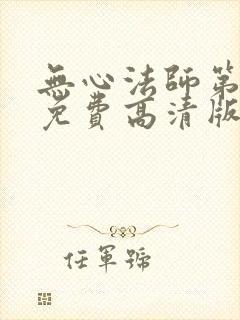 無心法師第
免費高清版
任軍號